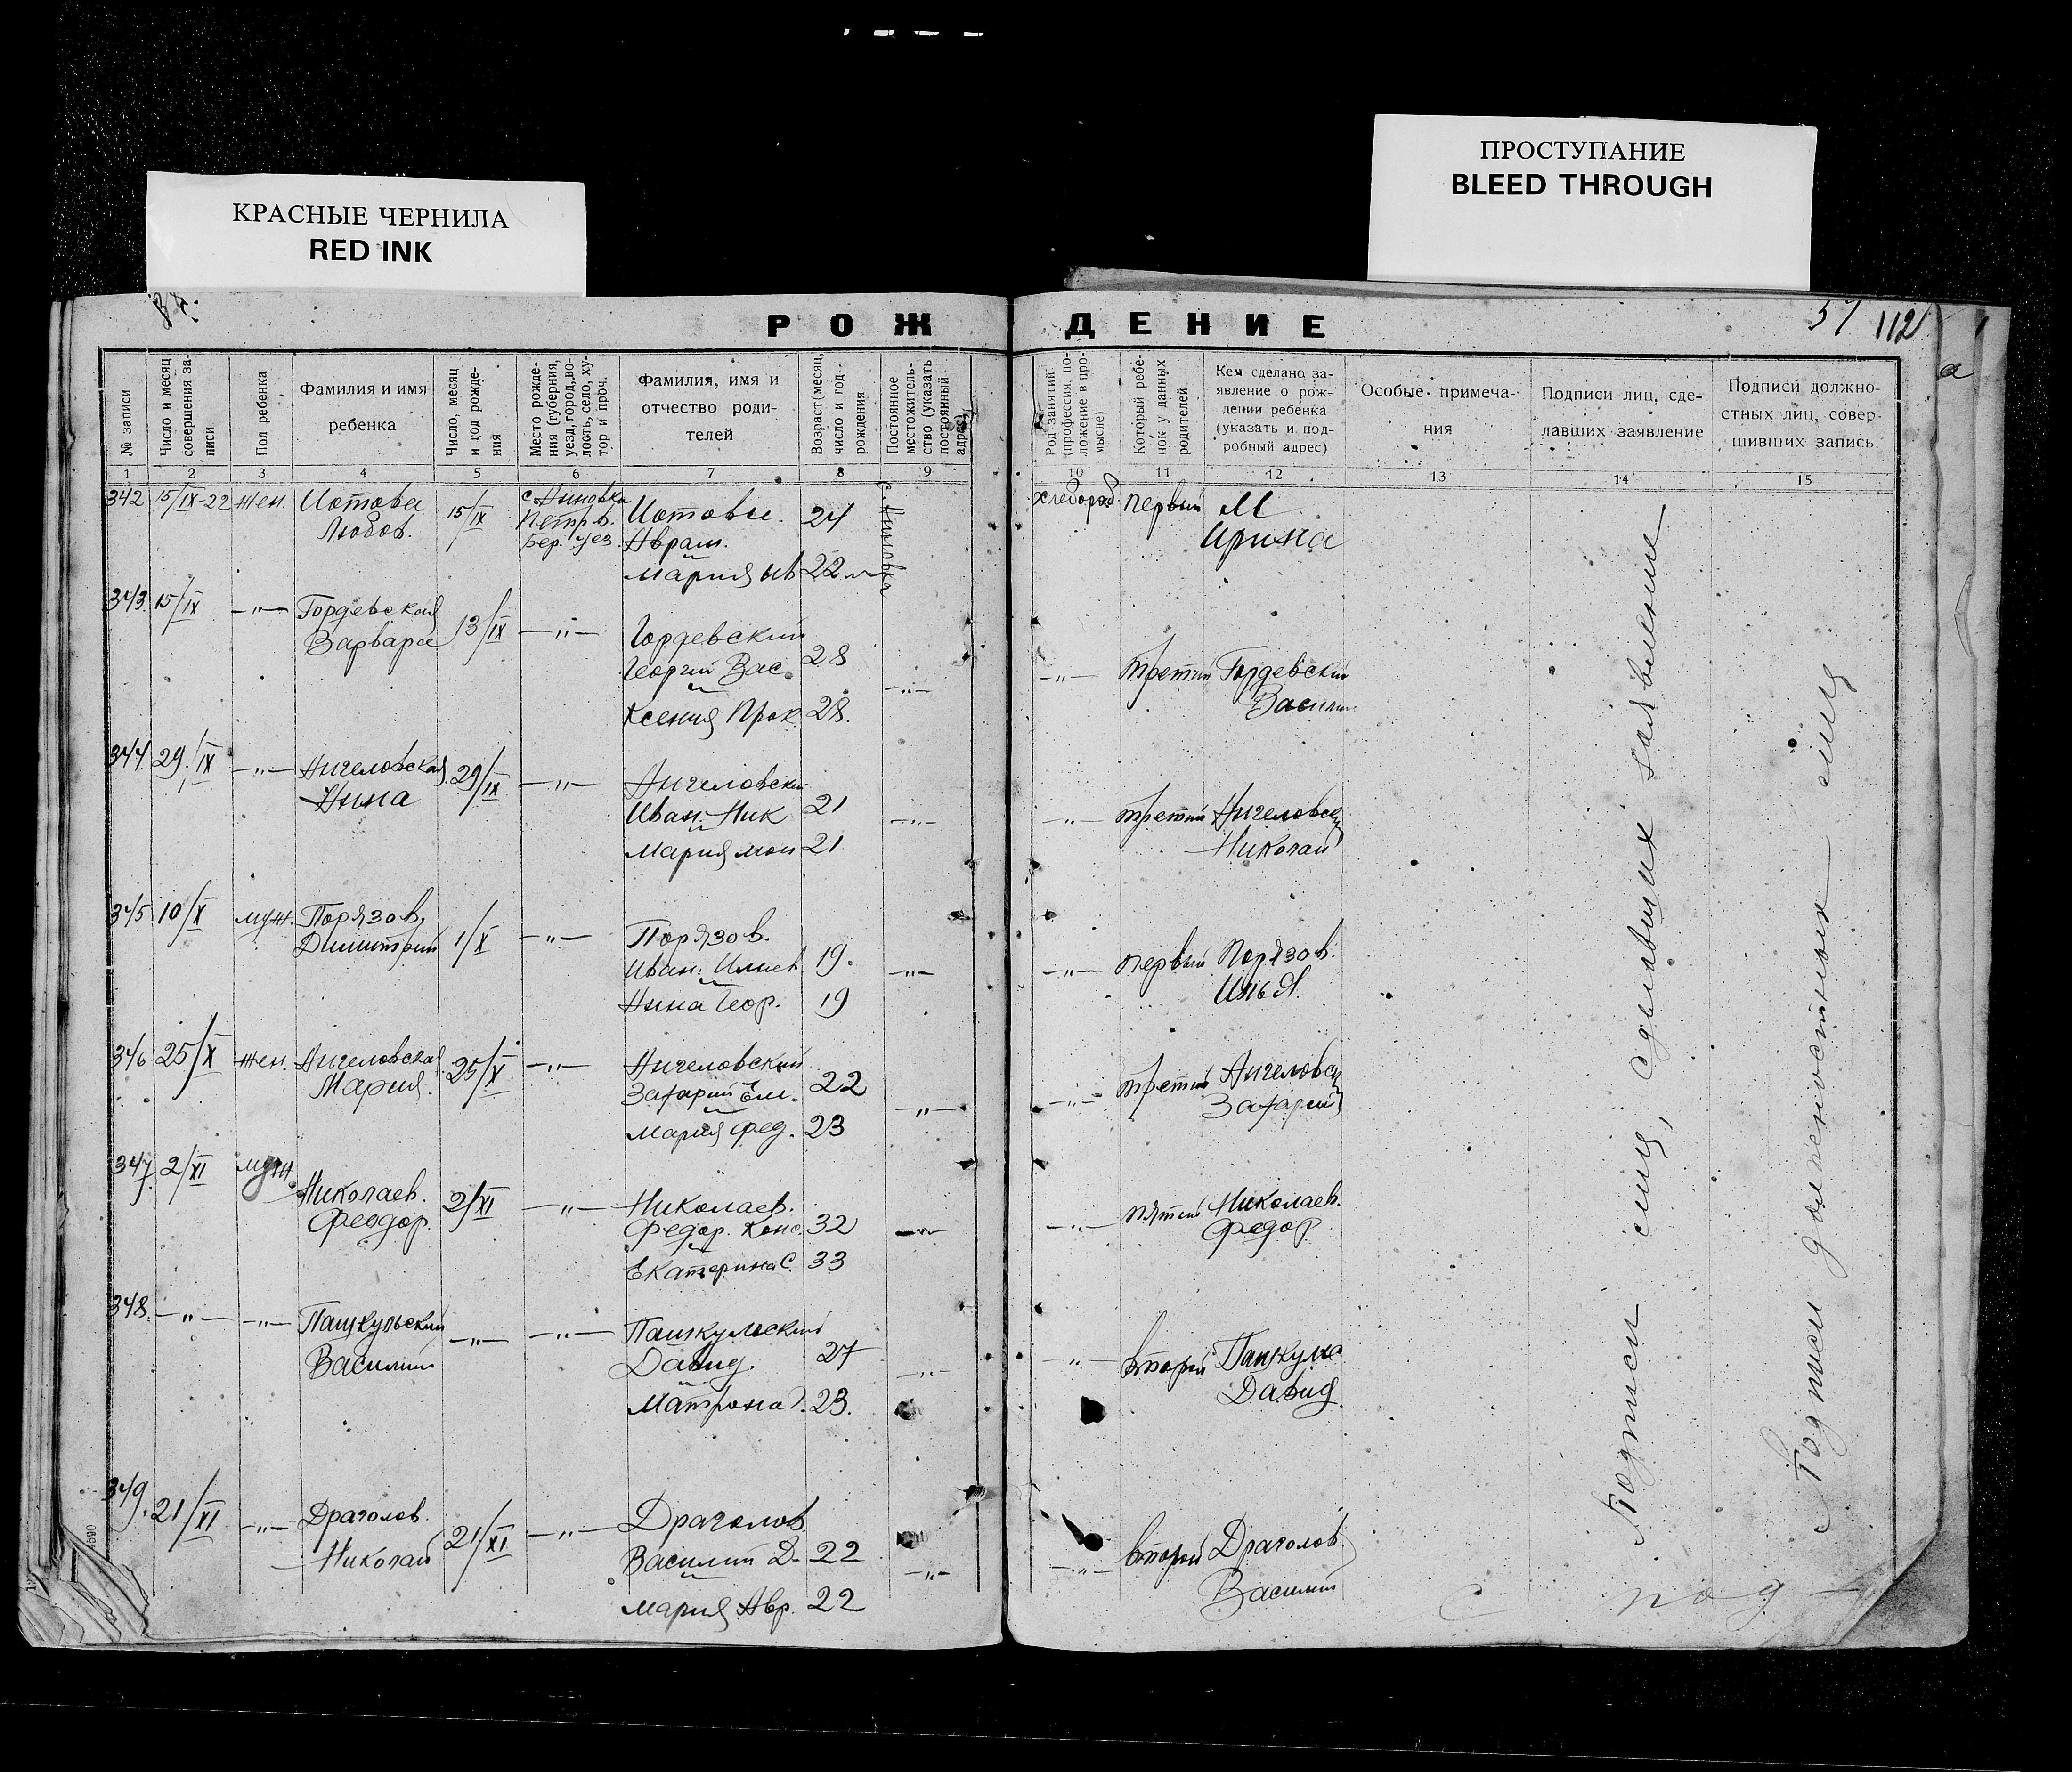 КРАСНЫЕ ЧЕРНИЛА
RED INK
ПРОСТУПАНИЕ
BLEED THROUGH
РОЖДЕНИЕ
57 112
№ записи
Число и месяц совершения записи
Пол ребенка
Фамилия и имя ребенка
Число, месяц и год рождения
Место рождения (губерния, уезд, город, волость, село, хутор и проч.
Фамилия, имя и отчество родителей
Возраст (месяц, число и год рождения
Постоянное местожительство (указать постоянный адрес)
Род занятий (профессия, положение в промысле)
Который ребенок у данных родителей
Кем сделано заявление о рождении ребенка (указать и подробный адрес)
Особые примечания
Подписи лиц, сделавших заявление
Подписи должностных лиц, совершивших запись.
1 2 3 4 5 6 7 8 9 10 11 12 13 14 15
342 15/IX-22 жен. Иотова 15/IX с. Анновка Иотовы. 24 с. Анновка хлебороб первый М
Любов. Петр. в. Аврам. Ирина
Бер. уез.
Мария Ив 22
343. 15/IX —"— Гордевская 13/IX —"— Гордевский
Варвара Георгий Вас. 28 —"— —"— третий Гордевский
Ксения Прок 28. Василий
344. 29/IX —"— Ангеловская 29/IX —"— Ангеловский
Нина Иван Ник 21 —"— —"— третий Ангеловский
Мария 21 Николай
345 10/X муж. Порязов, 1/X —"— Порязов.
Димитрий Иван Илиев 19. —"— —"— первый Порязов.
Нина Геор. 19 Илья.
346 25/X жен. Ангеловская 25/X —"— Ангеловский
Мария. Захарий Ем. 22 —"— —"— третий Ангеловский
Мария Фед. 23 Захарий
347. 2/XI муж.
Николаев. 2/XI —"— Николаев. —"— пятый Николаев.
Феодор. Федор. Конс. 32 —"— Федор
Екатерина С. 33
348. —"— —"— Пашкульский —"— —"— Пашкульский
Василий Давид. 27 —"— —"— второй Пашкулс
Матрона 23. Давид
349. 21/XI —"— Драголов. 21/XI —"— Драголов
Николай Василий Д. 22 —"— —"— второй Драголов
Мария Авр. 22 Василий
Подписи лиц, сделавших заявление
Подписи должностных лиц
с под